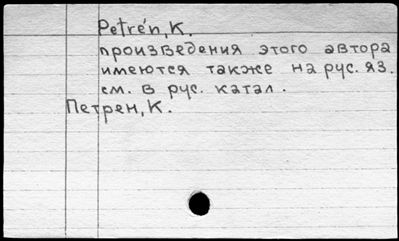 Petrén, K.
произведения этого автора
имеются также на рус. яз.
см. в рус. катал.
Петрен, К.